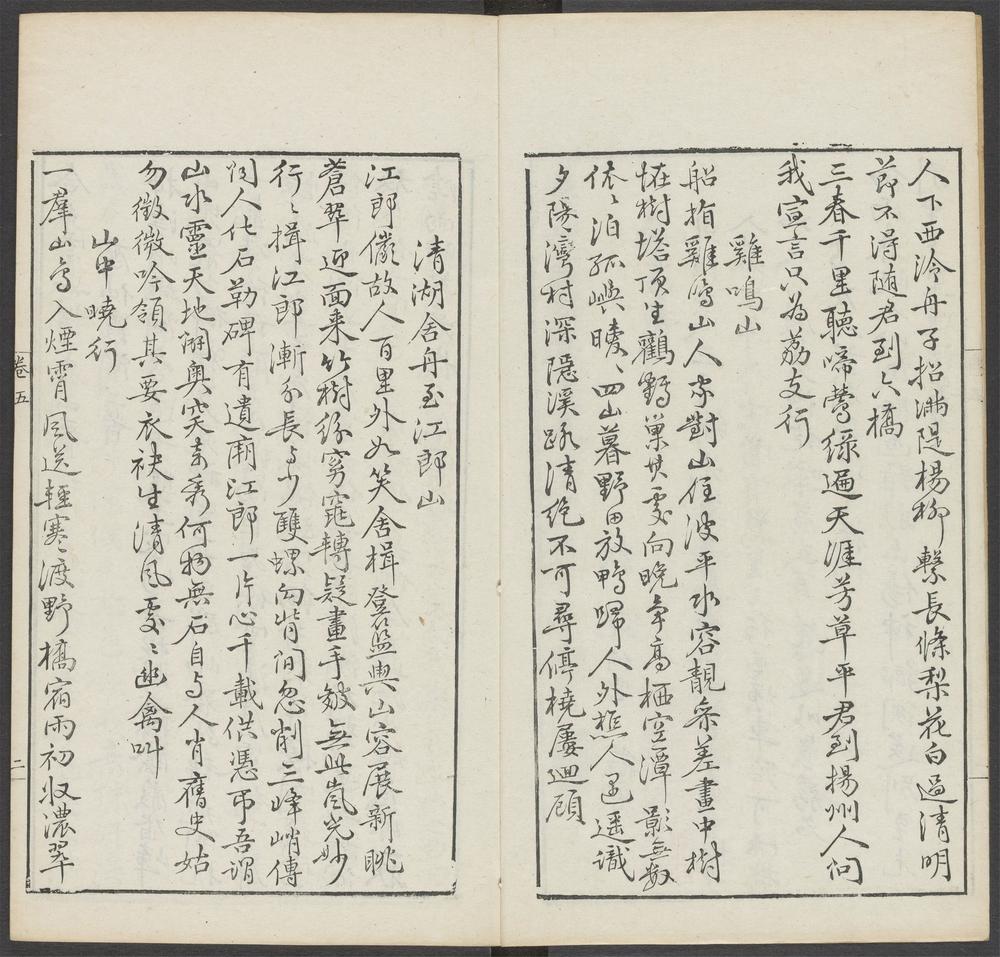 人下西泠舟子招滿隄楊柳繫長條梨花白過清明
節不得随君到六橋
三春千里聽啼鶯綠遍天涯芳草平君到揚州人问
我宣言只為荔支行
雞鳴山
船指雞鳴山人家對山住波平水容靚参差畫中樹
怪樹塔頂生鸛鶴巢其處向晚争高栖空潭影無數
依〻泊孤嶼曖〻四山暮野田放鴨歸人外樵人過遥識
夕陽灣村深隱溪路清絶不可尋停橈屢迴顧
清湖舍舟至江郎山
江郎儼故人百里外如笑舍楫登籃輿山容展新眺
蒼翠迎面来竹樹紛窈窕轉疑畫手皴無此嵐光妙
行〻揖江郎漸分長与少雙螺向背间忽削三峰峭傳
闻人化石勒碑有遺廟江郎一片心千載供憑弔吾謂
山水靈天地闢奥突奇秀何物無石自与人肖舊史姑
勿徵微吟領其要衣袂生清風處〻幽禽叫
山中曉行
一羣山鳥入煙霄風送輕寒渡野橋宿雨初收濃翠
卷五
二